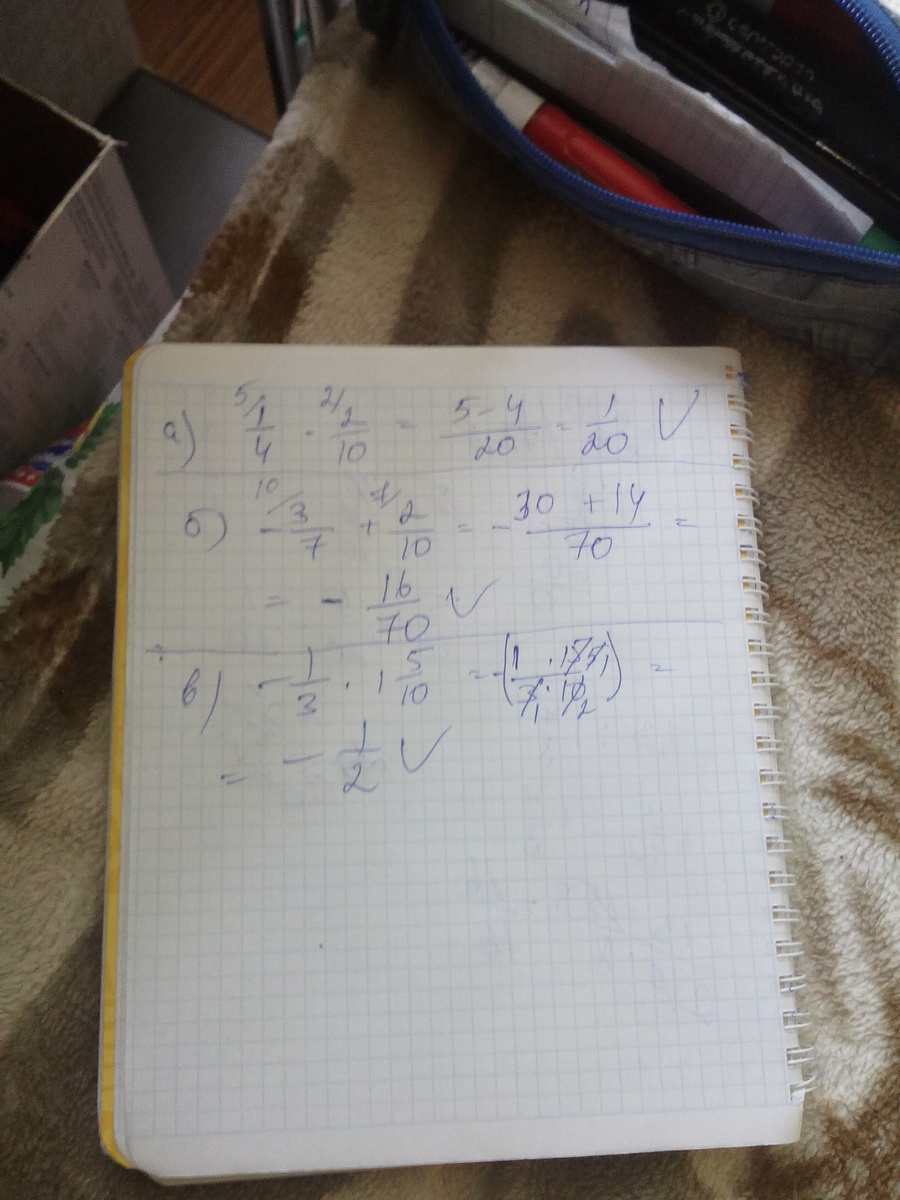 а) 5/ 1/4 - 2/ 2/10 = (5-4)/20 = 1/20 V
б) - 10/ 3/7 + 7/ 2/10 = - (30 + 14)/70 =
= - 16/70 V
в) - 1/3 · 1 5/10 = -(1 · 15 5 1)/(3 1 · 10 2) =
= - 1/2 V